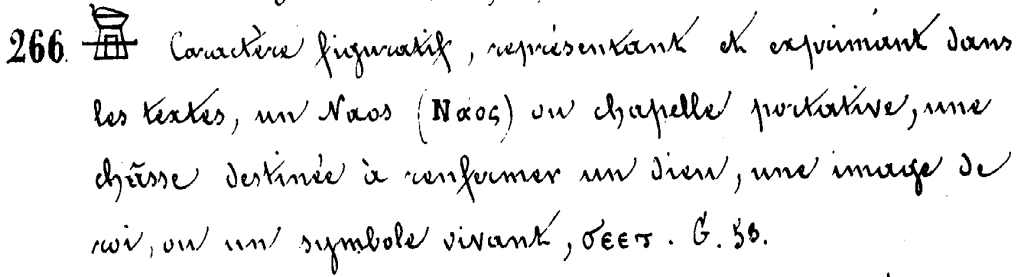 266. Caractère figuratif, représentant et exprimant dans
les textes, un Naos (Ναος) ou chapelle portative, une
châsse destinée à renfermer un dieu, une image de
roi, ou un symbole vivant, . G. 58.